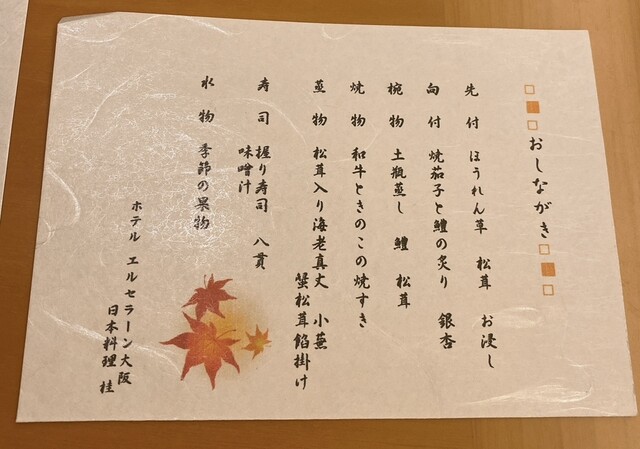 おしながき
先付 ほうれん草 松茸 お浸し
向付 焼茄子と鱧の炙り 銀杏
椀物 土瓶蒸し 鱧 松茸
焼物 和牛ときのこの焼すき
蒸物 松茸入り海老真丈 小蕪
蟹松茸餡掛け
寿司 握り寿司 八貫
味噌汁
水物 季節の果物
ホテル エルセラーン大阪
日本料理 桂